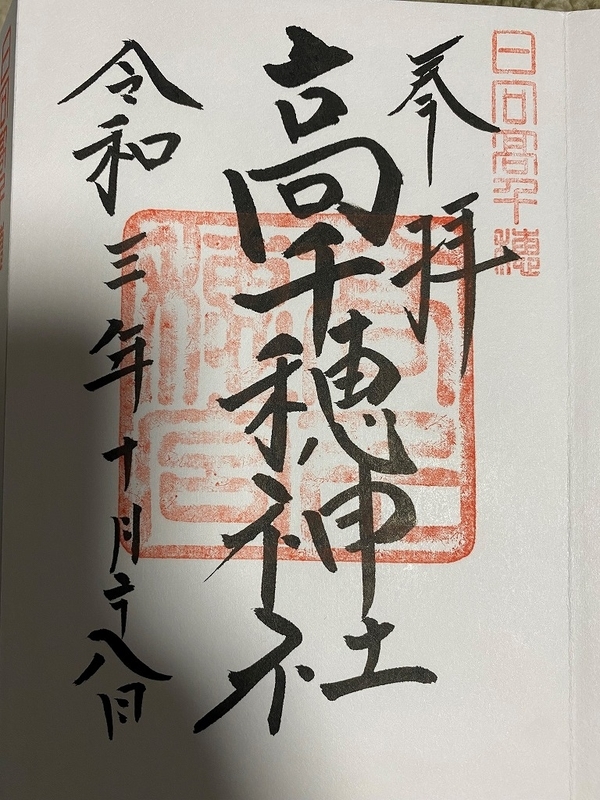 日向髙千穂
奉拝
高千穂神社
令和三年十月二十八日